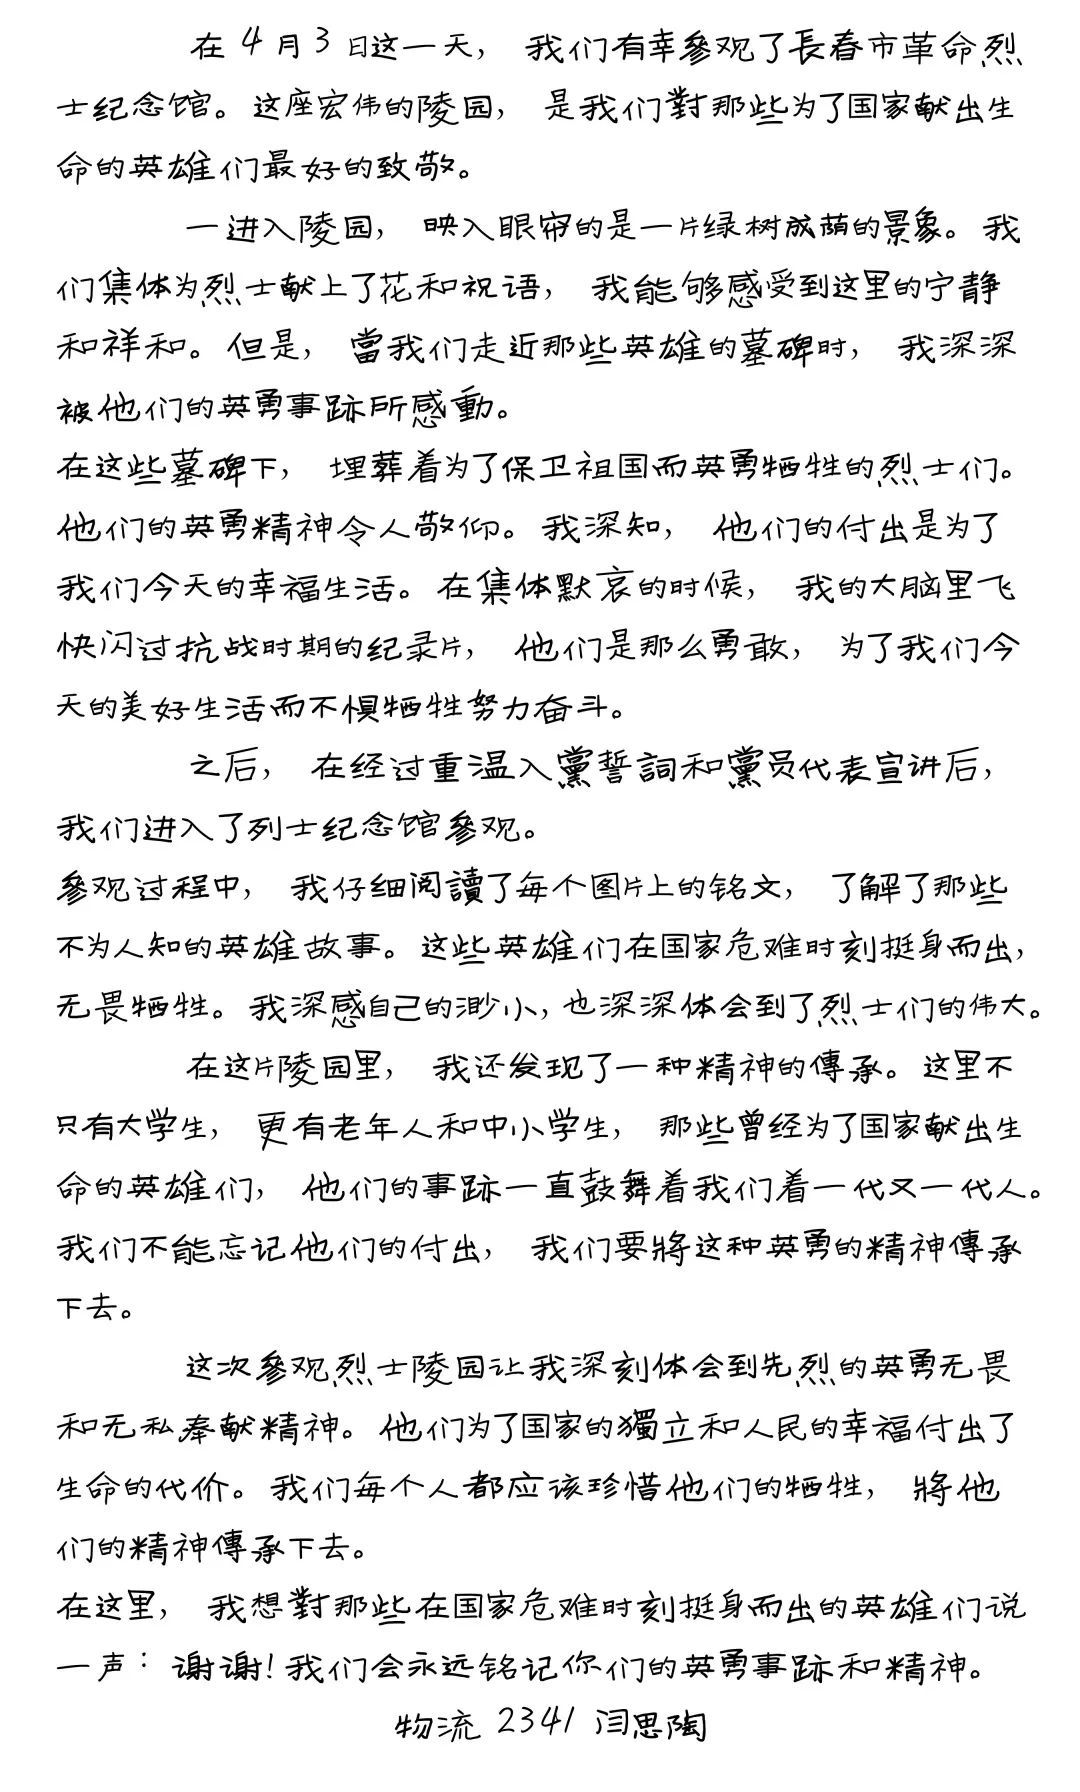 在4月3日这一天，我们有幸參观了長春市革命烈
士纪念馆。这座宏伟的陵园，是我们對那些为了国家献出生
命的英雄们最好的致敬。
一进入陵园，映入眼帘的是一片绿树成荫的景象。我
们集体为烈士献上了花和祝语，我能够感受到这里的宁静
和祥和。但是，當我们走近那些英雄的墓碑时，我深深
被他们的英勇事跡所感動。
在这些墓碑下，埋葬着为了保卫祖国而英勇牺牲的烈士们。
他们的英勇精神令人敬仰。我深知，他们的付出是为了
我们今天的幸福生活。在集体默哀的时候，我的大脑里飞
快闪过抗战时期的纪录片，他们是那么勇敢，为了我们今
天的美好生活而不惧牺牲努力奋斗。
之后，在经过重温入黨誓詞和黨员代表宣讲后，
我们进入了列士纪念馆參观。
參观过程中，我仔细阅讀了每个图片上的铭文，了解了那些
不为人知的英雄故事。这些英雄们在国家危难时刻挺身而出，
无畏牺牲。我深感自己的渺小，也深深体会到了烈士们的伟大。
在这片陵园里，我还发现了一种精神的傳承。这里不
只有大学生，更有老年人和中小学生，那些曾经为了国家献出生
命的英雄们，他们的事跡一直鼓舞着我们着一代又一代人。
我们不能忘记他们的付出，我们要將这种英勇的精神傳承
下去。
这次參观烈士陵园让我深刻体会到先烈的英勇无畏
和无私奉献精神。他们为了国家的獨立和人民的幸福付出了
生命的代价。我们每个人都应该珍惜他们的牺牲，將他
们的精神傳承下去。
在这里，我想對那些在国家危难时刻挺身而出的英雄们说
一声：谢谢！我们会永远铭记你们的英勇事跡和精神。
物流 2341 闫思陶